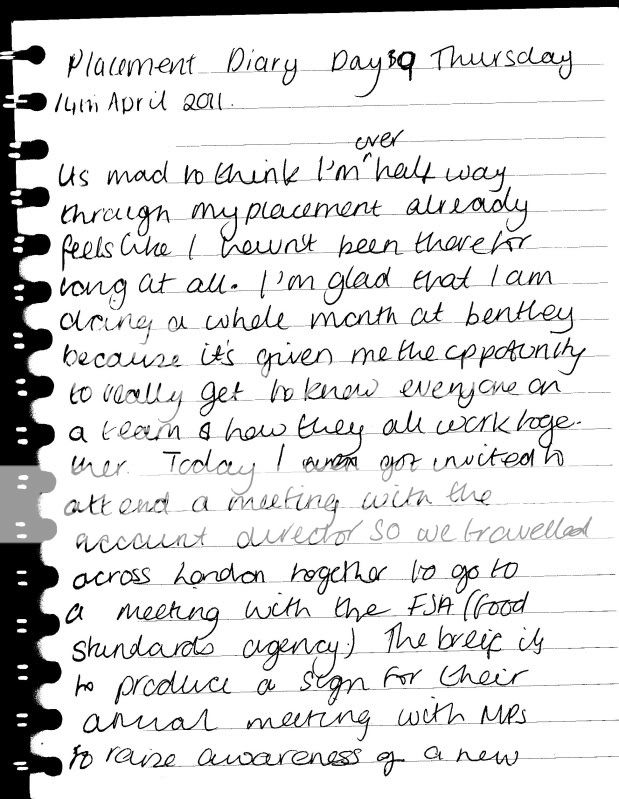 Placement Diary Day 39 Thursday
14th April 2011.
over
Its mad to think I'm ^ half way
through my placement already
feels like I havn't been there for
long at all. I'm glad that I am
doing a whole month at bentley
because it's given me the oppotunity
to really get to know everyone on
a team & how they all work toge-
ther. Today I got invited to
attend a meeting with the
account director so we travelled
across London together to go to
a meeting with the FSA (Food
standards agency.) The breif is
to produce a sign for their
annual meeting with MPs
to raise awareness of a new